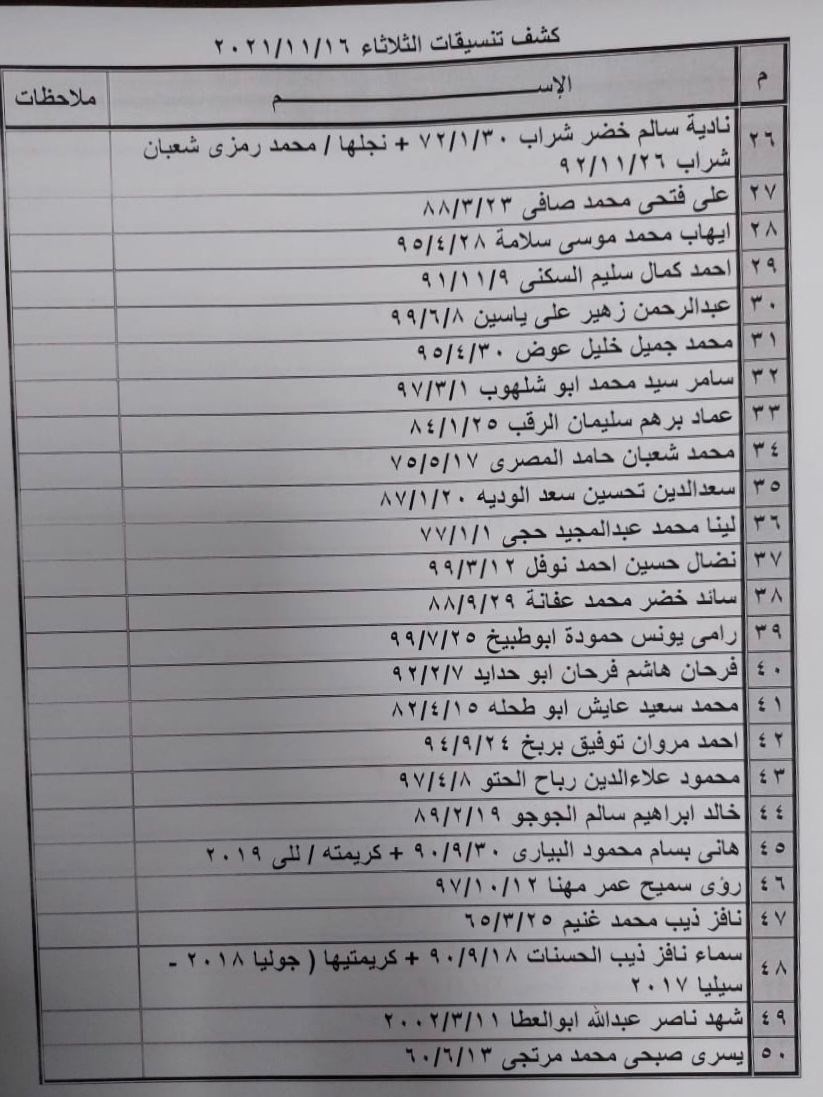 كشف تنسيقات الثلاثاء ٢٠٢١/١١/١٦
م الإســـــم ملاحظات
٢٦ نادية سالم خضر شراب ٧٢/١/٣٠ + نجلها / محمد رمزى شعبان
شراب ٩٢/١١/٢٦
٢٧ على فتحى محمد صافى ٨٨/٣/٢٣
٢٨ ايهاب محمد موسى سلامة ٩٥/٤/٢٨
٢٩ احمد كمال سليم السكنى ٩١/١١/٩
٣٠ عبدالرحمن زهير على ياسين ٩٩/٦/٨
٣١ محمد جميل خليل عوض ٩٥/٤/٣٠
٣٢ سامر سيد محمد ابو شلهوب ٩٧/٣/١
٣٣ عماد برهم سليمان الرقب ٨٤/١/٢٥
٣٤ محمد شعبان حامد المصرى ٧٥/٥/١٧
٣٥ سعدالدين تحسين سعد الوديه ٨٧/١/٢٠
٣٦ لينا محمد عبدالمجيد حجى ٧٧/١/١
٣٧ نضال حسين احمد نوفل ٩٩/٣/١٢
٣٨ سائد خضر محمد عفانة ٨٨/٩/٢٩
٣٩ رامى يونس حمودة ابوطبيخ ٩٩/٧/٢٥
٤٠ فرحان هاشم فرحان ابو حدايد ٩٢/٢/٧
٤١ محمد سعيد عايش ابو طحله ٨٢/٤/١٥
٤٢ احمد مروان توفيق بربخ ٩٤/٩/٢٤
٤٣ محمود علاءالدين رباح الحتو ٩٧/٤/٨
٤٤ خالد ابراهيم سالم الجوجو ٨٩/٢/١٩
٤٥ هانى بسام محمود البيارى ٩٠/٩/٣٠ + كريمته / للى ٢٠١٩
٤٦ رؤى سميح عمر مهنا ٩٧/١٠/١٢
٤٧ نافز ذيب محمد غنيم ٦٥/٣/٢٥
٤٨ سماء نافز ذيب الحسنات ٩٠/٩/١٨ + كريمتيها ( جوليا ٢٠١٨ -
سيليا ٢٠١٧
٤٩ شهد ناصر عبدالله ابوالعطا ٢٠٠٢/٣/١١
٥٠ يسرى صبحى محمد مرتجى ٦٠/٦/١٣